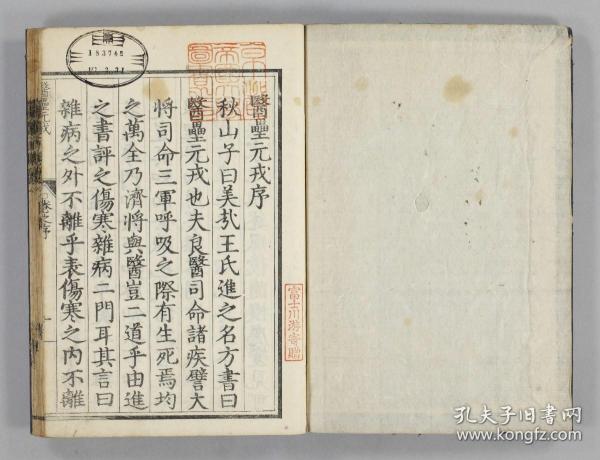 醫壘元戎序
秋山子曰美哉王氏進之名方書曰
醫壘元戎也夫良醫司命諸疾譬大
將司命三軍呼吸之際有生死焉均
之萬全乃濟將與醫豈二道乎由進
之書評之傷寒雜病二門耳其言曰
雜病之外不離乎表傷寒之內不離
醫壘元戎
卷之序
183745
富士川游寄贈
孔夫子旧书网
www.kongfz.com